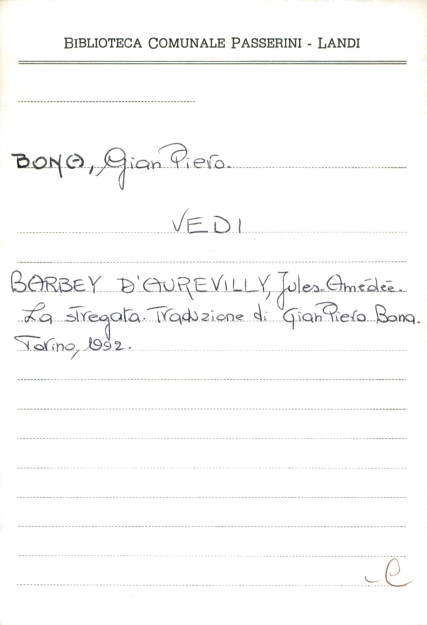 BIBLIOTECA COMUNALE PASSERINI - LANDI
BONA, Gian Piero.
VEDI
BARBEY D'AUREVILLY, Jules-Amédée.
La stregata. Traduzione di Gian Piero Bona.
Torino, 1992.
C